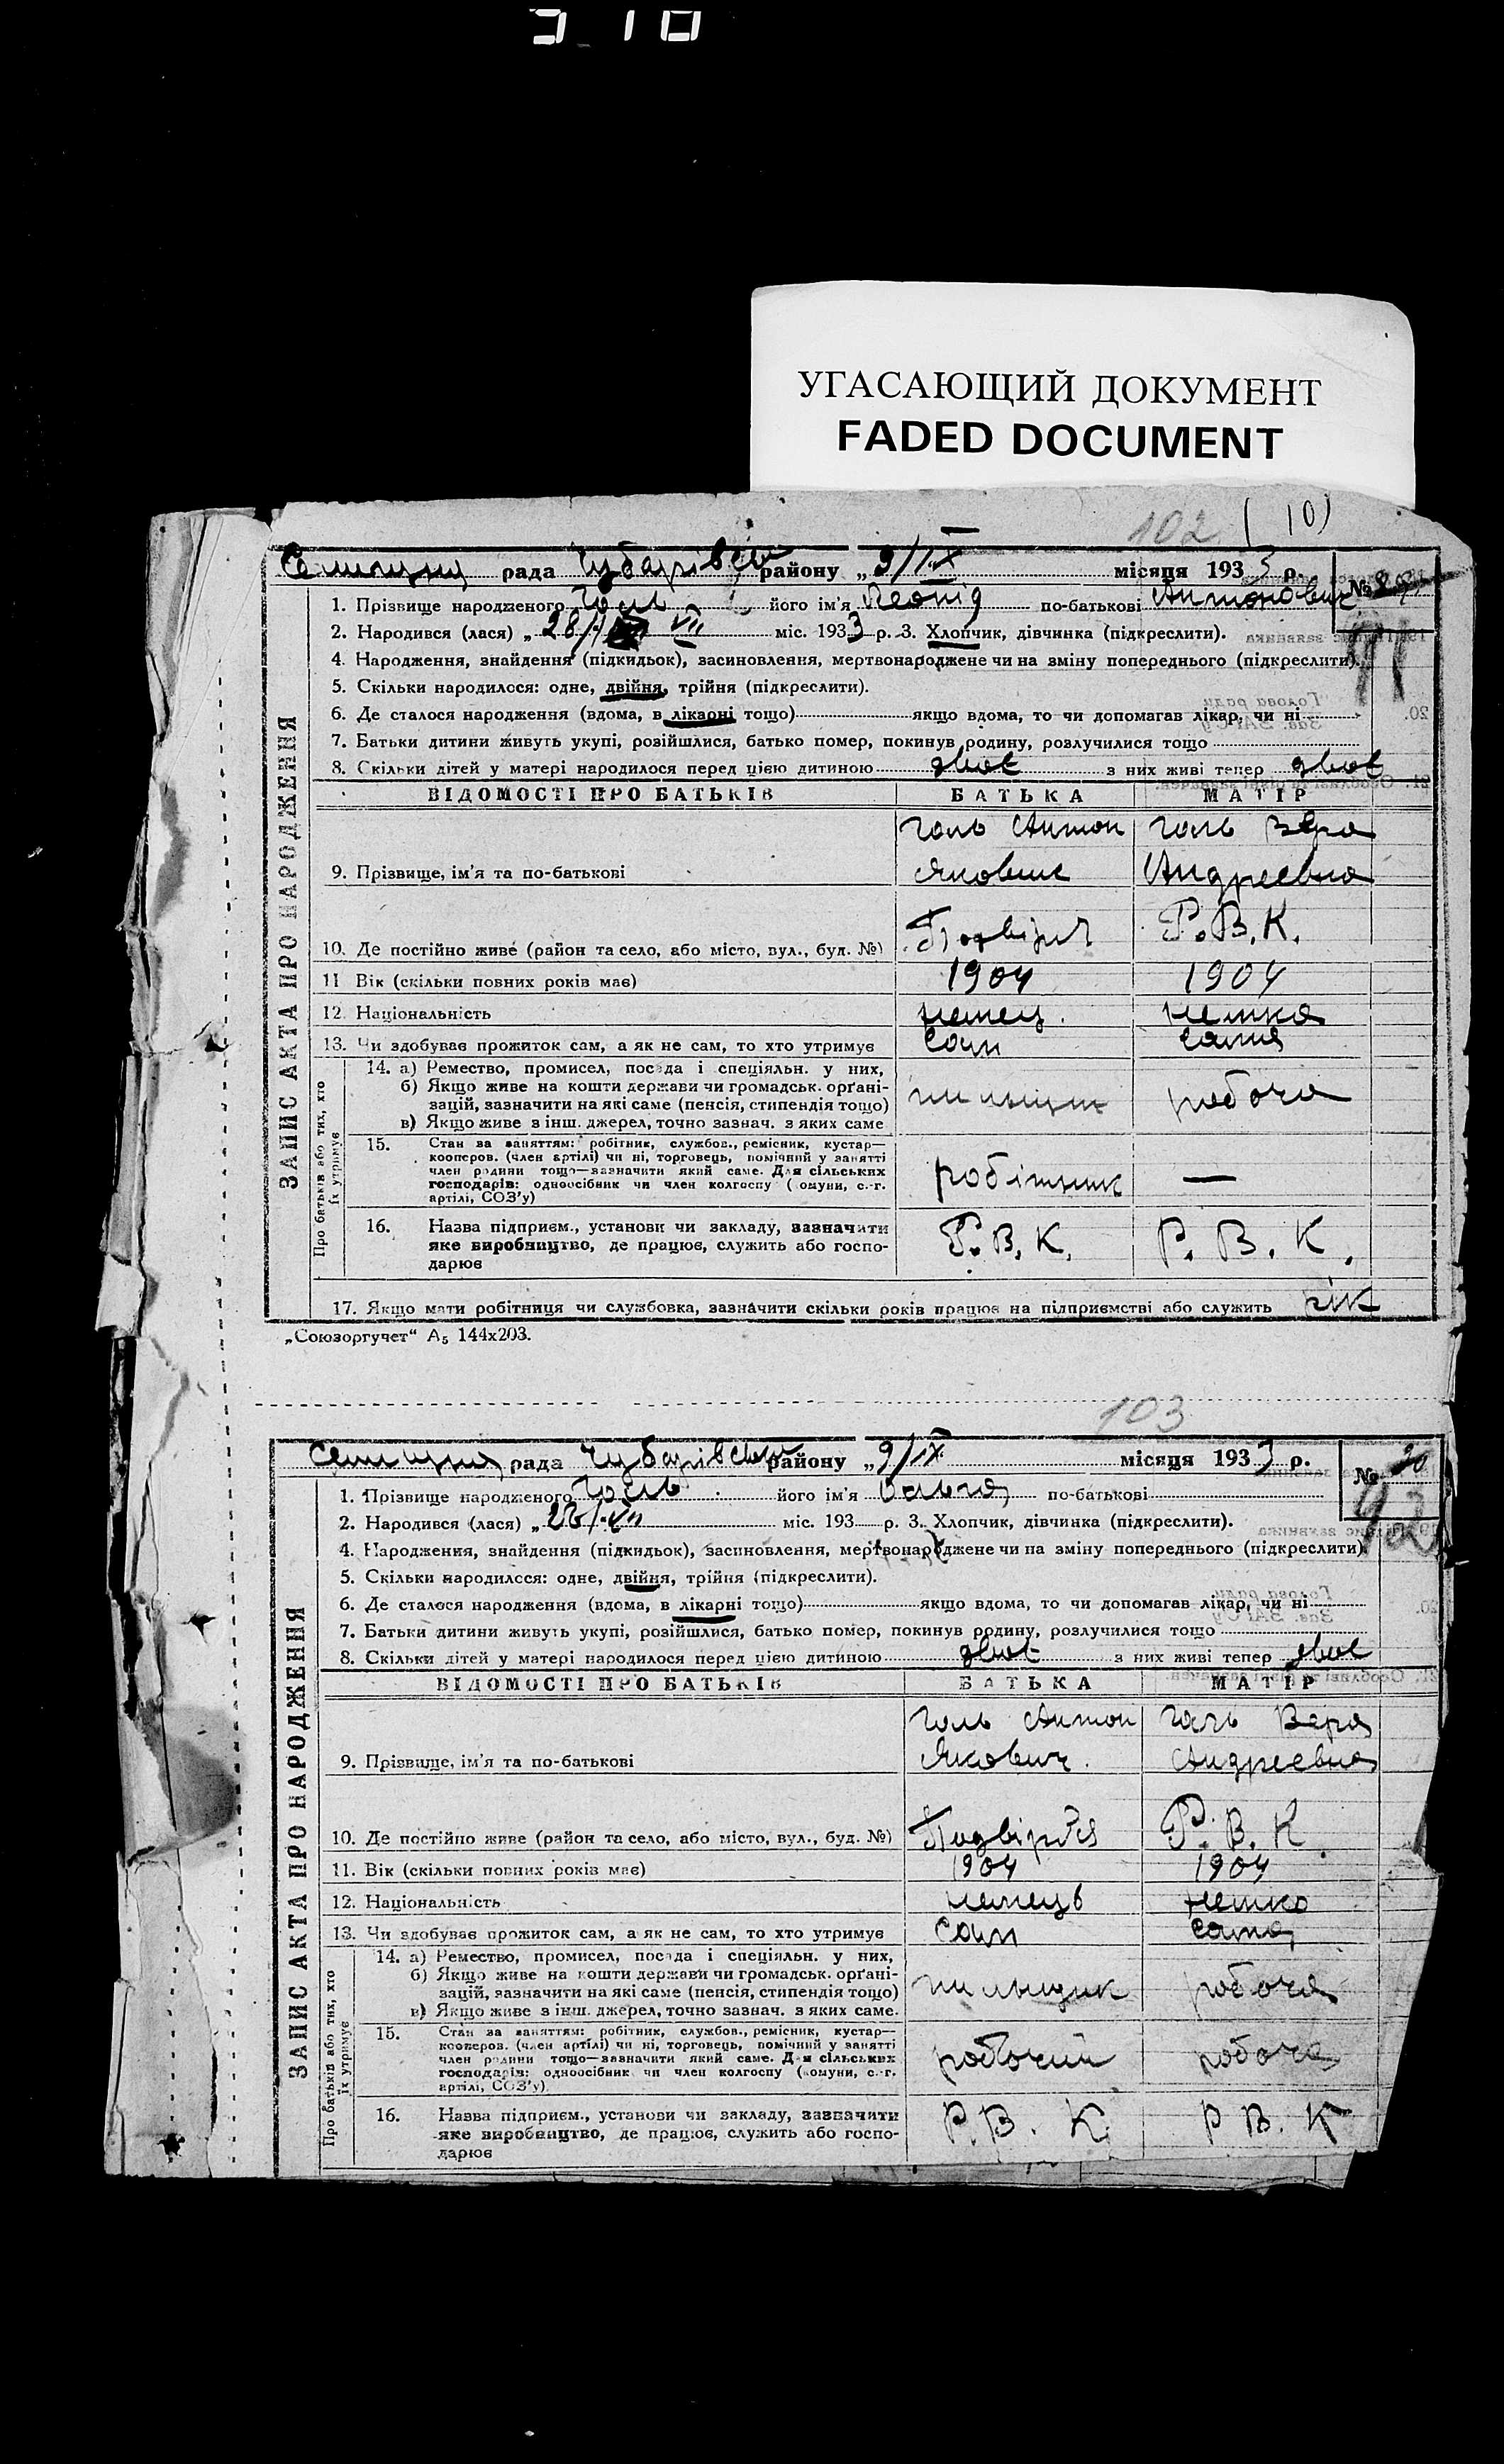 310
УГАСАЮЩИЙ ДОКУМЕНТ
FADED DOCUMENT
102 (10)
рада Чубарівськ району „ 9/IX місяця 1933 р. №
1. Прізвище народженого Голь його ім'я Леонід по-батькові Антонович
2. Народився (лася) „ 28/ VII міс. 1933 р. 3. Хлопчик, дівчинка (підкреслити).
4. Народження, знайдення (підкидьок), засиновлення, мертвонароджене чи на зміну попереднього (підкреслити).
5. Скільки народилося: одне, двійня, трійня (підкреслити).
6. Де сталося народження (вдома, в лікарні тощо) якщо вдома, то чи допомагав лікар, чи ні
7. Батьки дитини живуть укупі, розійшлися, батько помер, покинув родину, розлучилися тощо
8. Скільки дітей у матері народилося перед цією дитиною двоє з них живі тепер двоє
ЗАПИС АКТА ПРО НАРОДЖЕННЯ
ВІДОМОСТІ ПРО БАТЬКІВ БАТЬКА МАТІР
Голь Антон Голь Вера
9. Прізвище, ім'я та по-батькові Якович Андреевна
10. Де постійно живе (район та село, або місто, вул., буд. №) Р.В.К.
11 Вік (скільки повних років має) 1904 1904
12. Національність немец. немка
13. Чи здобуває прожиток сам, а як не сам, то хто утримує Сам сама
Про батьків або тих, хто їх утримує
14. а) Ремество, промисел, посада і спеціяльн. у них,
б) Якщо живе на кошти держави чи громадськ. орґані-
зацій, зазначити на які саме (пенсія, стипендія тощо) пильщик робоча
в) Якщо живе з інш. джерел, точно зазнач. з яких саме
15. Стан за заняттям: робітник, службов., ремісник, кустар—
кооперов. (член артілі) чи ні, торговець, помічний у занятті
член родини тощо—зазначити який саме. Для сільських
господарів: одноосібник чи член колгоспу (комуни, с.-г. робітник —
артілі, СОЗ'у)
16. Назва підприєм., установи чи закладу, зазначити
яке виробництво, де працює, служить або госпо- Р.В.К. Р.В.К.
дарює
17. Якщо мати робітниця чи службовка, зазначити скільки років працює на підприємстві або служить рік
„Союзоргучет" А₅ 144х203.
103
рада Чубарівськ району „ 9/IX місяця 1933 р. № 30
1. Прізвище народженого Голь його ім'я Ольга по-батькові
2. Народився (лася) „ 28/VII міс. 193 р. 3. Хлопчик, дівчинка (підкреслити).
4. Народження, знайдення (підкидьок), засиновлення, мертвонароджене чи на зміну попереднього (підкреслити)
5. Скільки народилося: одне, двійня, трійня (підкреслити).
6. Де сталося народження (вдома, в лікарні тощо) якщо вдома, то чи допомагав лікар, чи ні
7. Батьки дитини живуть укупі, розійшлися, батько помер, покинув родину, розлучилися тощо
8. Скільки дітей у матері народилося перед цією дитиною двоє з них живі тепер двоє
ЗАПИС АКТА ПРО НАРОДЖЕННЯ
ВІДОМОСТІ ПРО БАТЬКІВ БАТЬКА МАТІР
Голь Антон Голь Вера
9. Прізвище, ім'я та по-батькові Якович. Андреевна
10. Де постійно живе (район та село, або місто, вул., буд. №) Р.В.К
11. Вік (скільки повних років має) 1904 1904
12. Національність немець немка
13. Чи здобуває прожиток сам, а як не сам, то хто утримує Сам сама
Про батьків або тих, хто їх утримує
14. а) Ремество, промисел, посада і спеціяльн. у них,
б) Якщо живе на кошти держави чи громадськ. орґані-
зацій, зазначити на які саме (пенсія, стипендія тощо) пильщик робоча
в) Якщо живе з інш. джерел, точно зазнач. з яких саме.
15. Стан за заняттям: робітник, службов., ремісник, кустар—
кооперов. (член артілі) чи ні, торговець, помічний у занятті
член родини тощо—зазначити який саме. Для сільських робочий робоча
господарів: одноосібник чи член колгоспу (комуни, с.-г.
артілі, СОЗ'у)
16. Назва підприєм., установи чи закладу, зазначити
яке виробництво, де працює, служить або госпо- Р.В.К. Р В. К
дарює